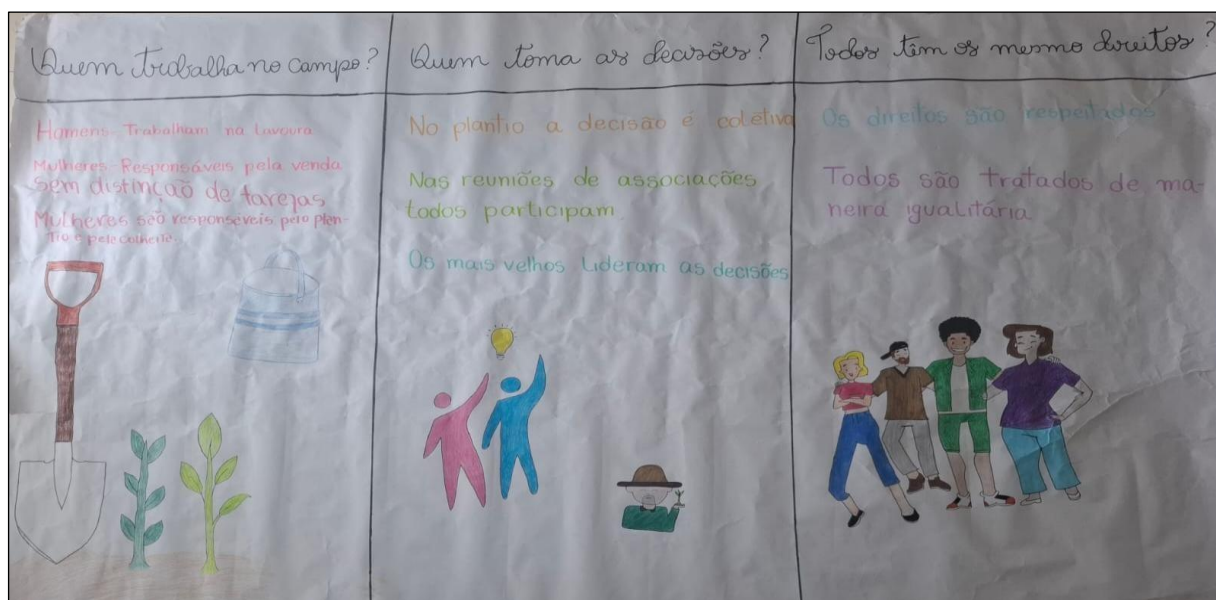 Quem trabalha no campo?
Homens-Trabalham na Lavoura
Mulheres-Responsáveis pela venda
Sem distinção de tarefas
Mulheres são responsáveis pelo plan-
tio e pela colheita.
Quem toma as decisões?
No plantio a decisão é coletiva
Nas reuniões de associações
todos participam
Os mais velhos Lideram as decisões
Todos têm os mesmo direitos?
Os direitos são respeitados
Todos são tratados de ma-
neira igualitária